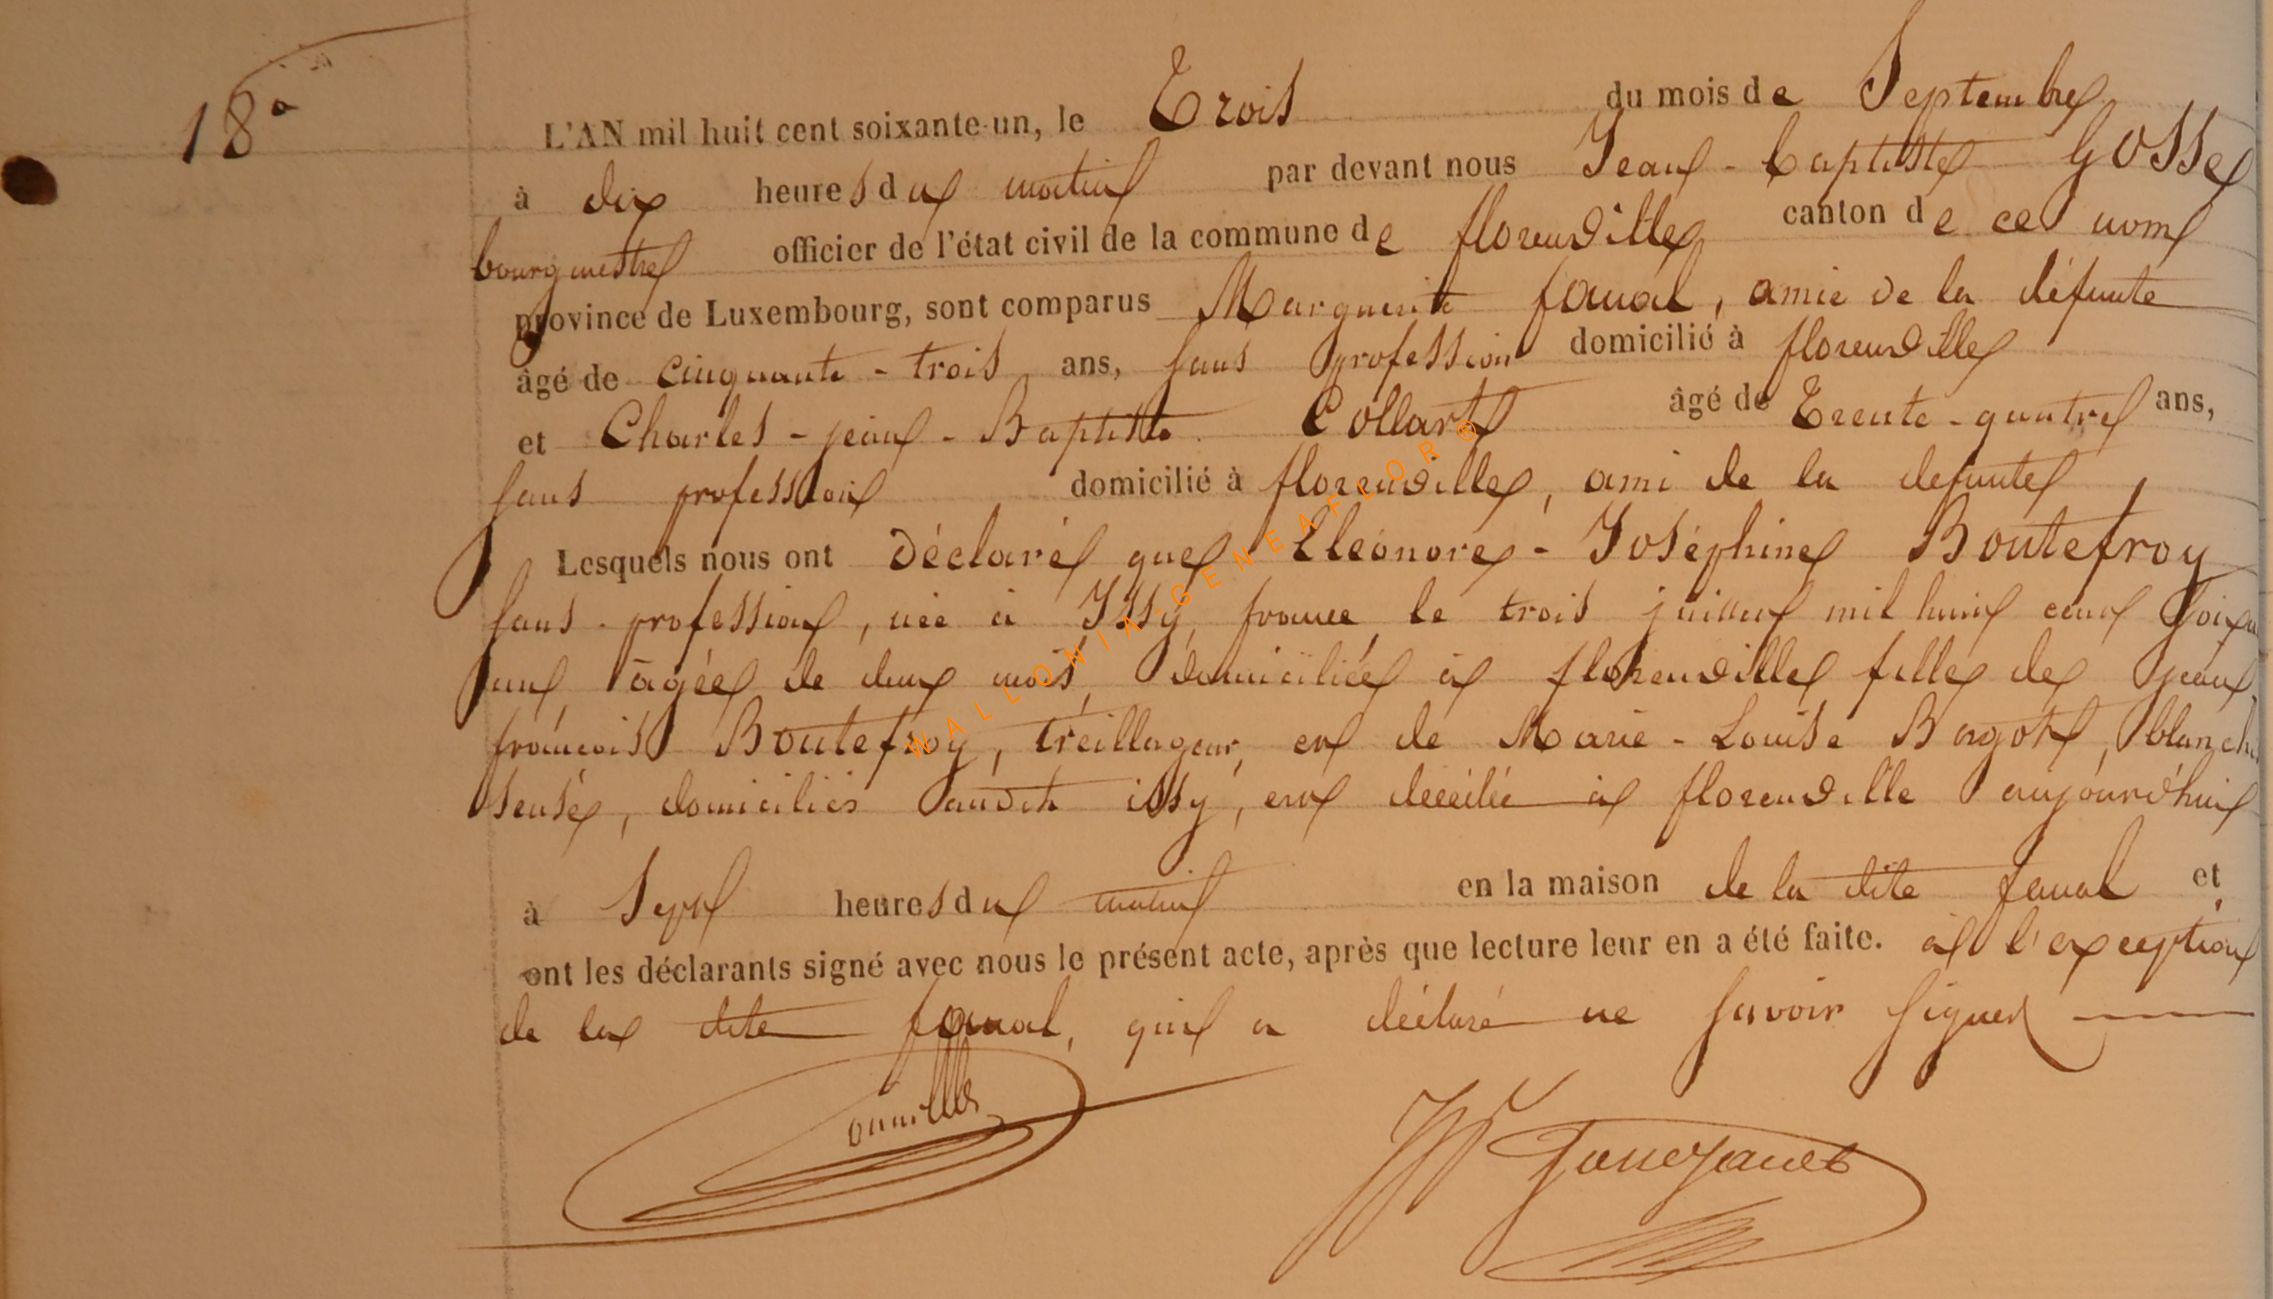 18ª
L'AN mil huit cent soixante-un, le Trois du mois de Septembre
à dix heures du matin par devant nous Jean-Baptiste Gosse
bourgmestre officier de l'état civil de la commune de florenville canton de ce nom
province de Luxembourg, sont comparus Marguerite fanal, amie de la défunte
âgé de cinquante-trois ans, sans profession domicilié à florenville
et Charles-jean-Baptiste Collart âgé de Trente-quatre ans,
sans profession domicilié à florenville, ami de la defunte
Lesquels nous ont déclaré que Eléonore-Joséphine Boutefroy
sans profession, née à Issy, france, le trois juillet mil huit cent soixante
un, âgée de deux mois, domiciliée à florenville fille de jean-
françois Boutefroy, treillageur, et de Marie-Louise Bagot, blanchis
seuse, domiciliés audit issy, est décédée à florenville aujourd'hui
à Sept heures du matin en la maison de la dite fanal et
ont les déclarants signé avec nous le présent acte, après que lecture leur en a été faite. à l'exception
de la dite fanal, qui a déclaré ne savoir signer
WALLONIA-GENEAFLOR®